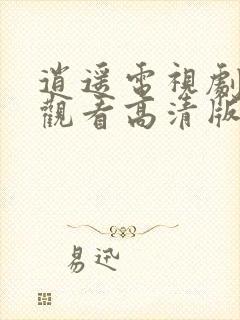 逍遥電視劇
觀看高清版
易迅